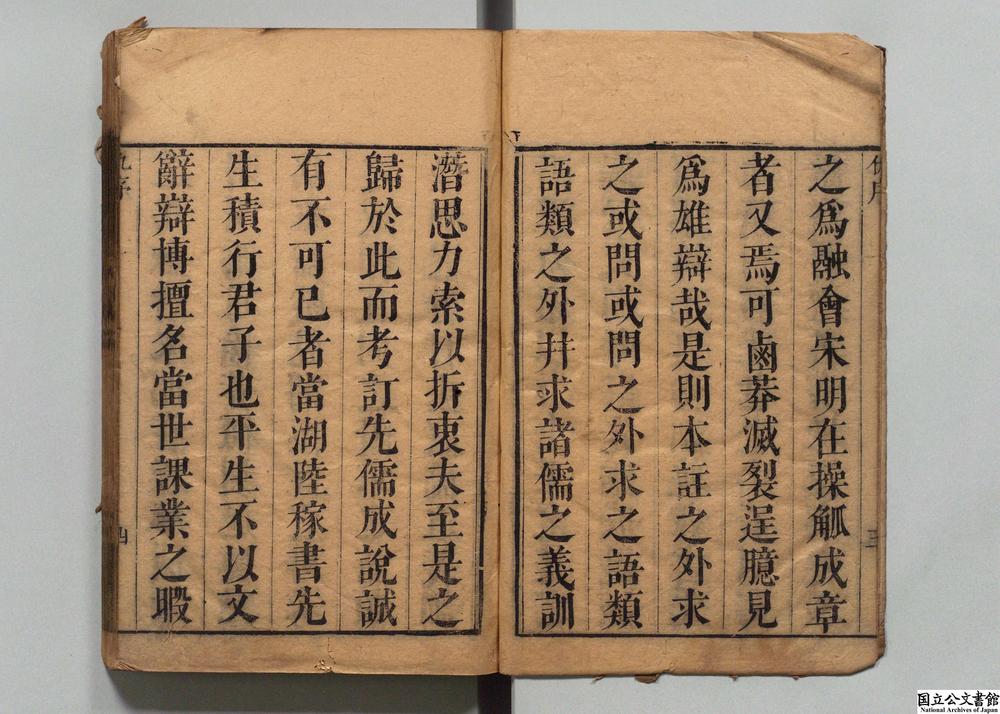 之爲融會宋明在操觚成章
者又焉可鹵莽滅裂逞臆見
爲雄辯哉是則本註之外求
之或問或問之外求之語類
語類之外幷求諸儒之義訓
潛思力索以折衷夫至是之
歸於此而考訂先儒成說誠
有不可已者當湖陸稼書先
生積行君子也平生不以文
辭辯博擅名當世課業之暇
三
四
国立公文書館
National Archives of Japan